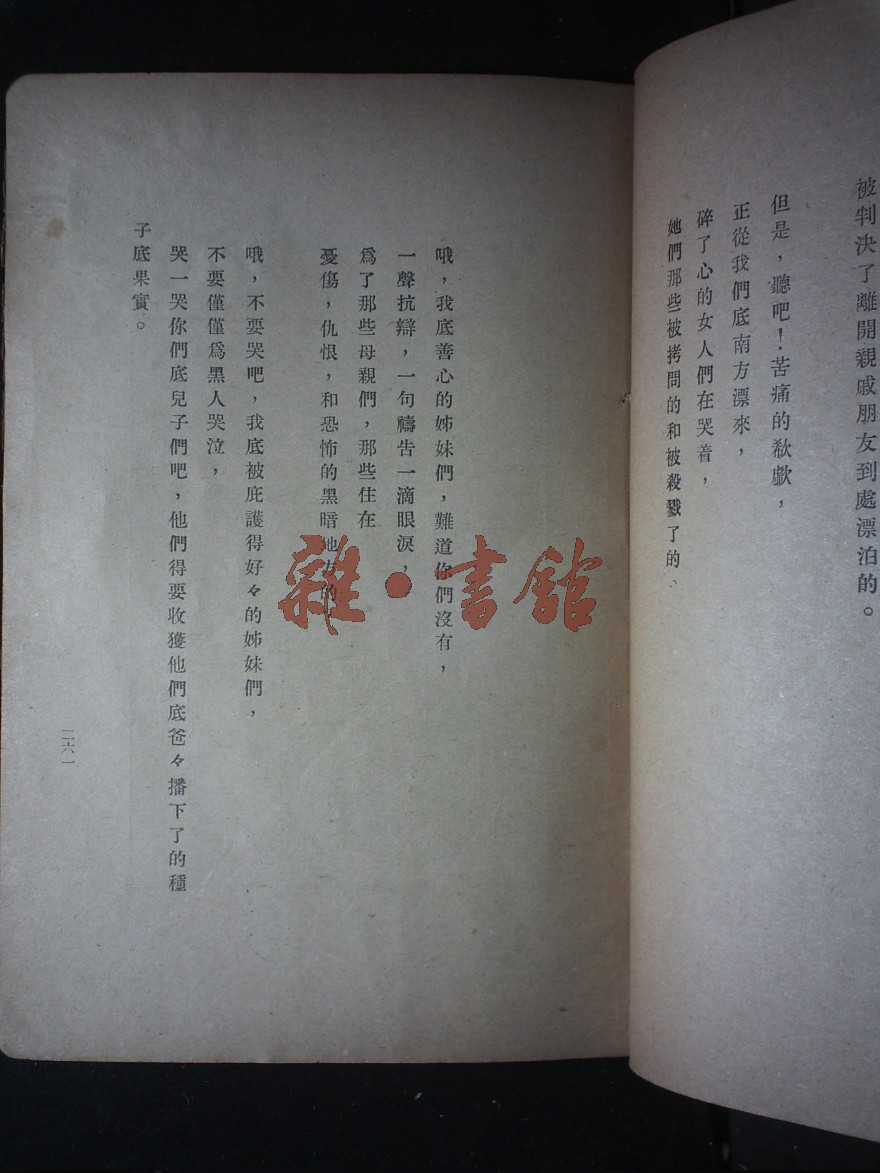 被判決了離開親戚朋友到處漂泊的。
但是，聽吧！苦痛的欷歔，
正從我們底南方漂來，
碎了心的女人們在哭着，
她們那些被拷問的和被殺戮了的、
哦，我底善心的姊妹們，難道你們沒有，
一聲抗辯，一句禱告一滴眼淚，
爲了那些母親們，那些住在
憂傷，仇恨，和恐怖的黑暗地方的
哦，不要哭吧，我底被庇護得好々的姊妹們，
不要僅僅爲黑人哭泣，
哭一哭你們底兒子們吧，他們得要收獲他們底爸々播下了的種
子底果實。
二六一
雜·書館